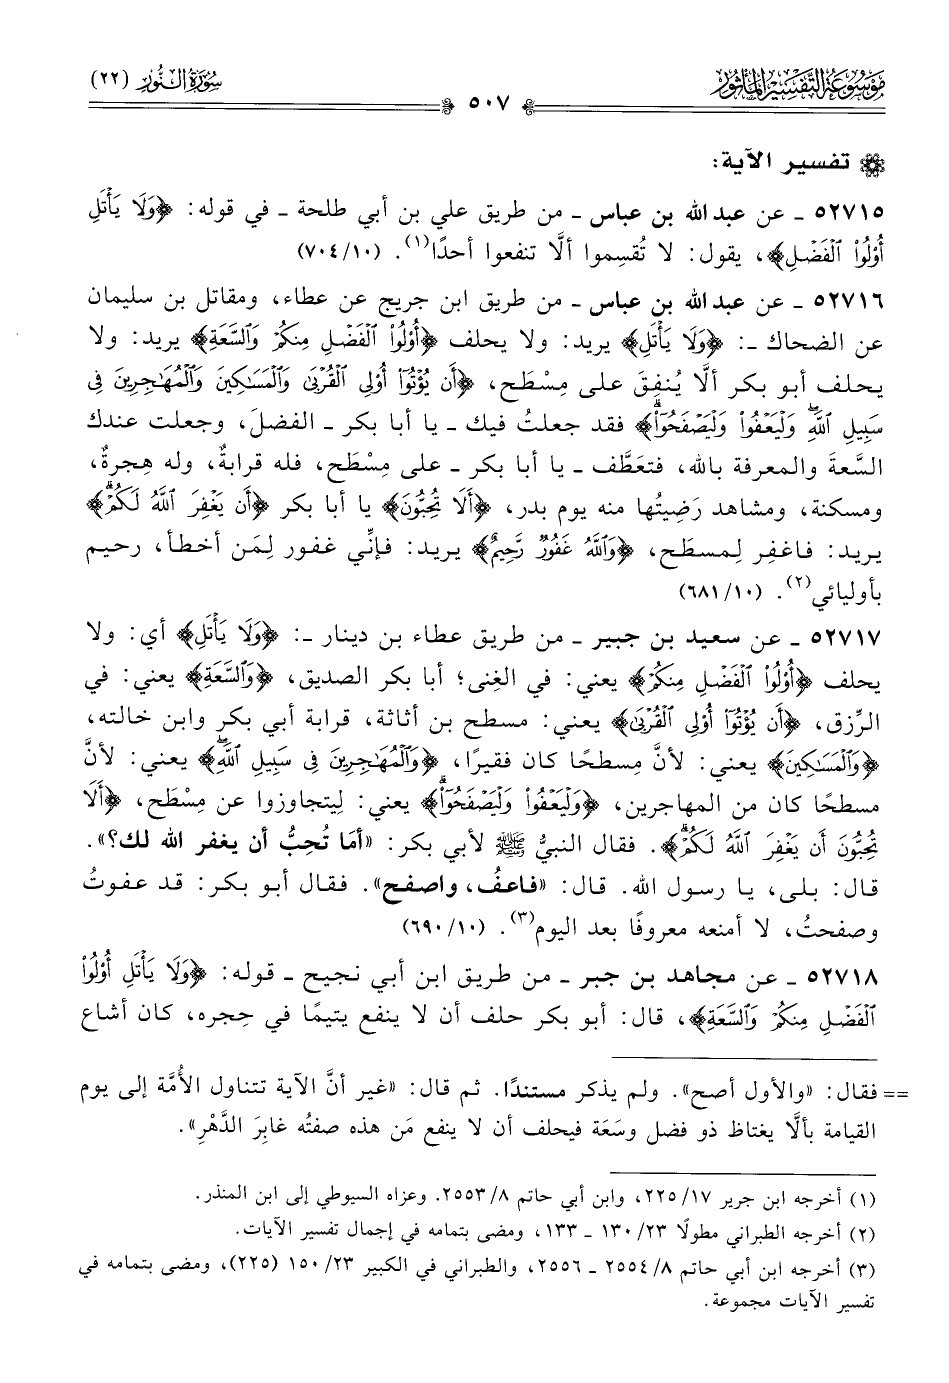 موسوعة التفسير المأثور
سورة النور (٢٢)
٥٠٧
تفسير الآية:
٥٢٧١٥ ـ عن عبد الله بن عباس ـ من طريق علي بن أبي طلحة ـ في قوله: ﴿وَلَا يَأْتَلِ
أُوْلُواْ ٱلْفَضْلِ﴾، يقول: لا تُقسِموا ألَّا تنفعوا أحدًا(١). (١٠/ ٧٠٤)
٥٢٧١٦ ـ عن عبد الله بن عباس ـ من طريق ابن جريج عن عطاء، ومقاتل بن سليمان
عن الضحاك ـ: ﴿وَلَا يَأْتَلِ﴾ يريد: ولا يحلف ﴿أُوْلُواْ ٱلْفَضْلِ مِنكُمْ وَٱلسَّعَةِ﴾ يريد: ولا
يحلف أبو بكر ألَّا يُنفِق على مِسْطَح، ﴿أَن يُؤْتُوٓاْ أُوْلِى ٱلْقُرْبَىٰ وَٱلْمَسَٰكِينَ وَٱلْمُهَٰجِرِينَ فِى
سَبِيلِ ٱللَّهِۖ وَلْيَعْفُواْ وَلْيَصْفَحُوٓاْۗ﴾ فقد جعلتُ فيك ـ يا أبا بكر ـ الفضلَ، وجعلت عندك
السَّعةَ والمعرفة بالله، فتعَطَّف ـ يا أبا بكر ـ على مِسْطَح، فله قرابةٌ، وله هِجرةٌ،
ومسكنة، ومشاهد رَضِيتُها منه يوم بدر، ﴿أَلَا تُحِبُّونَ﴾ يا أبا بكر ﴿أَن يَغْفِرَ ٱللَّهُ لَكُمْۗ﴾
يريد: فاغفِر لِمسطَح، ﴿وَٱللَّهُ غَفُورٌ رَّحِيمٌ﴾ يريد: فإنِّي غفور لِمَن أخطأ، رحيم
بأوليائي(٢). (١٠/ ٦٨١)
٥٢٧١٧ ـ عن سعيد بن جبير ـ من طريق عطاء بن دينار ـ: ﴿وَلَا يَأْتَلِ﴾ أي: ولا
يحلف ﴿أُوْلُواْ ٱلْفَضْلِ مِنكُمْ﴾ يعني: في الغِنى؛ أبا بكر الصديق، ﴿وَٱلسَّعَةِ﴾ يعني: في
الرِّزق، ﴿أَن يُؤْتُوٓاْ أُوْلِى ٱلْقُرْبَىٰ﴾ يعني: مسطح بن أثاثة، قرابة أبي بكر وابن خالته،
﴿وَٱلْمَسَٰكِينَ﴾ يعني: لأنَّ مِسطحًا كان فقيرًا، ﴿وَٱلْمُهَٰجِرِينَ فِى سَبِيلِ ٱللَّهِۖ﴾ يعني: لأنَّ
مسطحًا كان من المهاجرين، ﴿وَلْيَعْفُواْ وَلْيَصْفَحُوٓاْۗ﴾ يعني: لِيتجاوزوا عن مِسْطَح، ﴿أَلَا
تُحِبُّونَ أَن يَغْفِرَ ٱللَّهُ لَكُمْۗ﴾. فقال النبيُّ ﷺ لأبي بكر: «أمَا تُحِبُّ أن يغفر الله لك؟».
قال: بلى، يا رسول الله. قال: «فاعفُ، واصفح». فقال أبو بكر: قد عفوتُ
وصفحتُ، لا أمنعه معروفًا بعد اليوم(٣). (١٠/ ٦٩٠)
٥٢٧١٨ ـ عن مجاهد بن جبر ـ من طريق ابن أبي نجيح ـ قوله: ﴿وَلَا يَأْتَلِ أُوْلُواْ
ٱلْفَضْلِ مِنكُمْ وَٱلسَّعَةِ﴾، قال: أبو بكر حلف أن لا ينفع يتيمًا في حِجره، كان أشاع
== فقال: «والأول أصح». ولم يذكر مستندًا. ثم قال: «غير أنَّ الآية تتناول الأُمَّة إلى يوم
القيامة بألَّا يغتاظ ذو فضل وسَعَة فيحلف أن لا ينفع مَن هذه صفتُه غابِرَ الدَّهْرِ».
(١) أخرجه ابن جرير ١٧/ ٢٢٥، وابن أبي حاتم ٨/ ٢٥٥٣. وعزاه السيوطي إلى ابن المنذر.
(٢) أخرجه الطبراني مطولًا ٢٣/ ١٣٠ ـ ١٣٣، ومضى بتمامه في إجمال تفسير الآيات.
(٣) أخرجه ابن أبي حاتم ٨/ ٢٥٥٤ ـ ٢٥٥٦، والطبراني في الكبير ٢٣/ ١٥٠ (٢٢٥)، ومضى بتمامه في
تفسير الآيات مجموعة.